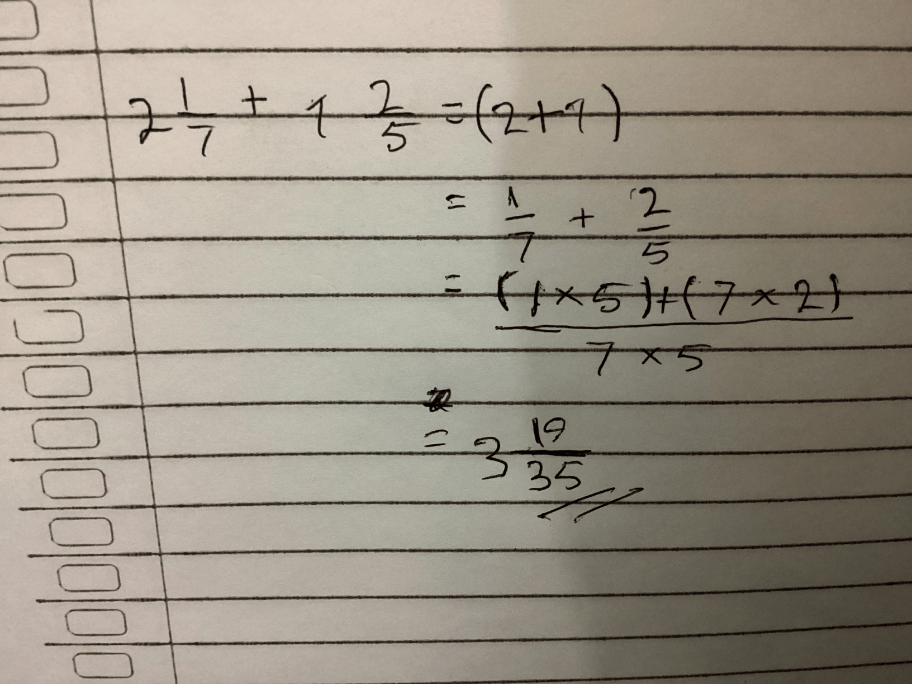 2 1/7 + 1 2/5 = (2+1)
= 1/7 + 2/5
= (1×5)+(7×2) / 7×5
= 3 19/35 //